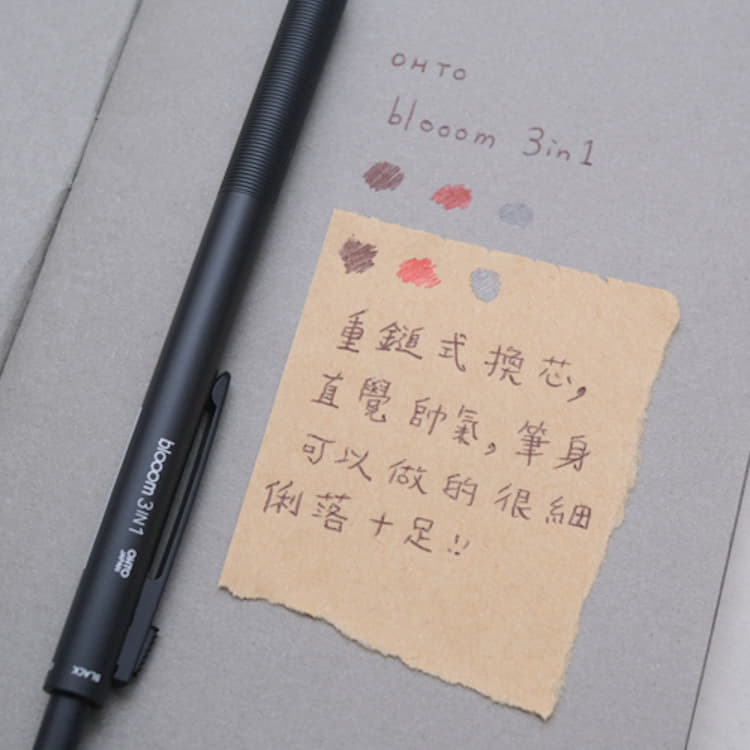 OHTO
blooom 3in1
重鎚式換芯,
直覺帥氣,筆身
可以做的很細
俐落十足!!
blooom 3IN1
OHTO
JAPAN
BLACK